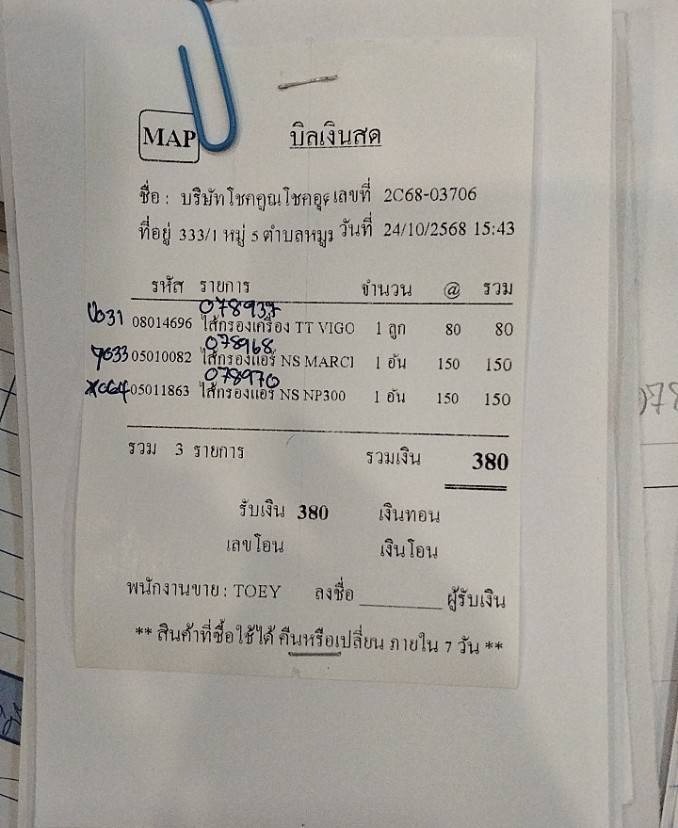 MAP
บิลเงินสด
ชื่อ : บริษัทโชคคูณโชคอุ เลขที่ 2C68-03706
ที่อยู่ 333/1 หมู่ 5 ตำบล วันที่ 24/10/2568 15:43
รหัส รายการ จำนวน @ รวม
078937
08014696 ไส้กรองเครื่อง TT VIGO 1 ลูก 80 80
078968
05010082 ไส้กรองแอร์ NS MARCI 1 อัน 150 150
078970
05011863 ไส้กรองแอร์ NS NP300 1 อัน 150 150
รวม 3 รายการ รวมเงิน 380
รับเงิน 380 เงินทอน
เลขโอน เงินโอน
พนักงานขาย : TOEY ลงชื่อ ________ ผู้รับเงิน
** สินค้าที่ซื้อใช้ได้ คืนหรือเปลี่ยน ภายใน 7 วัน **